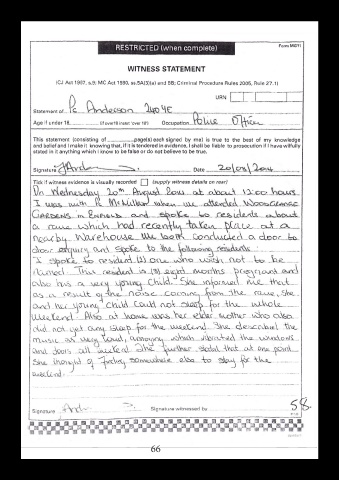 RESTRICTED (when complete)
Form MG11
WITNESS STATEMENT
(CJ Act 1967, s.9; MC Act 1980, ss.5A(3)(a) and 5B; Criminal Procedure Rules 2005, Rule 27.1)
URN
Statement of Pc Anderson
Age if under 18 (if over 18 insert 'over 18') Occupation Police Officer
This statement (consisting of page(s) each signed by me) is true to the best of my knowledge
and belief and I make it knowing that, if it is tendered in evidence, I shall be liable to prosecution if I have wilfully
stated in it anything which I know to be false or do not believe to be true.
Signature Date 20/08/2014
Tick if witness evidence is visually recorded (supply witness details on rear)
On Wednesday 20th August 2014 at about 12:00 hours
I was with Pc McMillan when we attended
Gardens in and spoke to residents about
a rave which had recently taken place at a
nearby Warehouse. We both conducted a door to
door and spoke to the following residents.
I spoke to resident (1) one who wish not to be
named. This resident is (8) eight months pregnant and
also has a very young child. She informed me that
as a result of the noise coming from the rave, she
and her young child could not sleep for the whole
weekend. Also at home was her elder mother who also
did not get any sleep for the weekend. She described the
music as very loud, annoying which vibrated the windows
and doors all weekend. She further stated that at one point
she thought of finding somewhere else to stay for the
weekend.
Signature Signature witnessed by
58
66